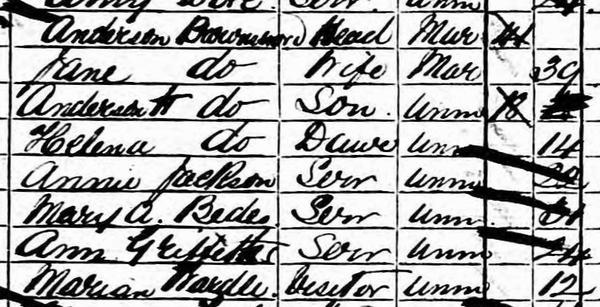 Serv Unm
Anderson Brownsword Head Mar 44
Jane do Wife Mar 39
Anderson H do Son. Unm 18
Helena do Daur Unm 14
Annie Jackson Serv Unm
Mary A. Bedes Serv Unm
Ann Griffiths Serv Unm 24
Marian Wardle Visitor Unm 12